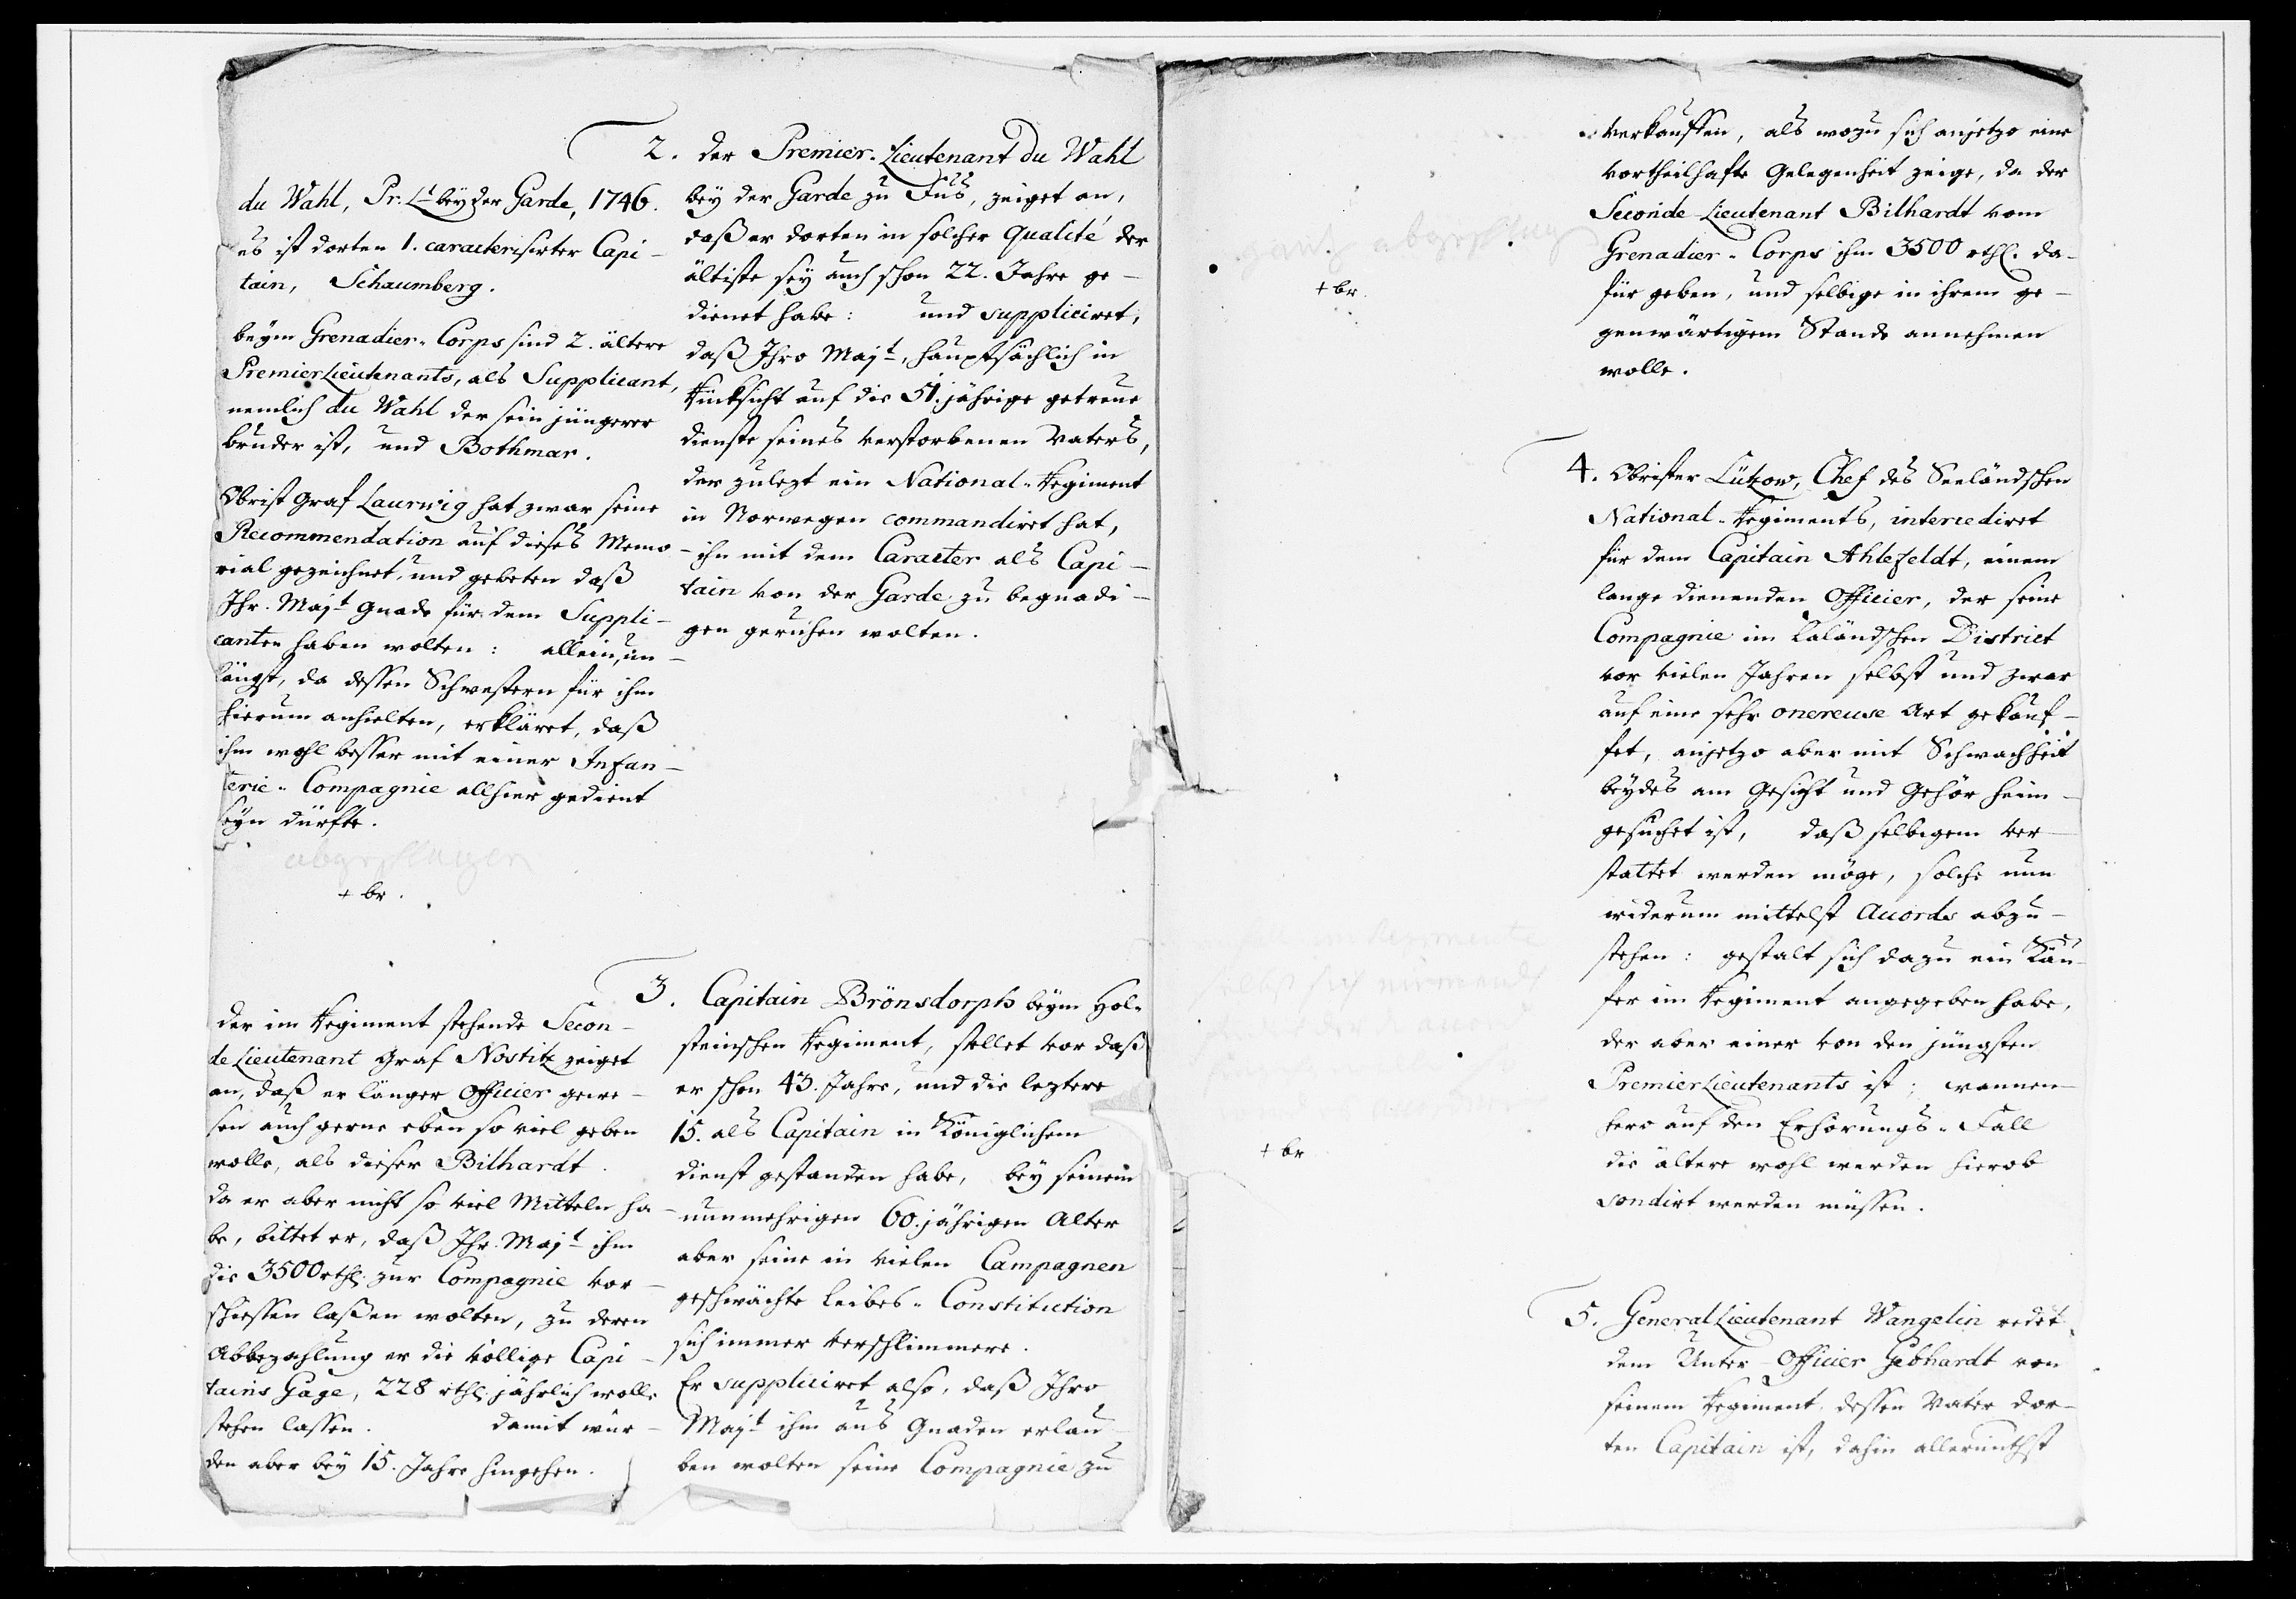 2. der Premier-Lieutenant du Wahl
bey der Garde zu Fuß, zeiget an,
daß er dorten in solcher Qualité der
ältiste sey auch schon 22. Jahre ge-
dienet habe: und suppliciret,
daß Ihro Majt, hauptsächlich in
Rücksicht auf die 51.jährige getreue
dienste seines verstorbenen Vaters,
der zulezt ein National-Regiment
in Norwegen commandiret hat,
ihn mit dem Caracter als Capi-
tain von der Garde zu begnadi-
gen geruhen wolten.
du Wahl, Pr. Lt bey der Garde, 1746.
es ist dorten 1. caracterisirter Capi-
tain, Schaumberg.
beym Grenadier-Corps sind 2. ältere
PremierLieutenants, als Supplicant,
nemlich du Wahl der sein jüngerer
bruder ist, und Bothmar.
Obrist Graf Laurwig hat zwar seine
Recommendation auf dieses Memo-
rial gezeichnet, und gebeten daß
Ihr. Majt Gnade für dem Suppli-
canten haben wolten: allein, un-
längst, da dessen Schwestern für ihm
hierum anhielten, erkläret, daß
ihm wohl besser mit einer Infan-
terie-Compagnie allhier gedient
seyn dürfte.
abgeschlagen
+ br.
3. Capitain Brönsdorph beym Hol-
steinschen Regiment, stellet vor daß
er schon 43. Jahre, und die leztere
15. als Capitain in Königlichem
dienst gestanden habe, bey seinem
nunmehrigen 60.jährigen Alter
aber seine in vielen Campagnen
geschwächte Leibes-Constitution
sich immer verschlimmere.
Er suppliciret also, daß Ihro
Majt ihm aus Gnaden erlau-
ben wolten seine Compagnie zu
der im Regiment stehende Secon-
de Lieutenant Graf Nostitz zeiget
an, daß er länger Officier gewe-
sen auch gerne eben so viel geben
wolle, als dieser Bilhardt.
da er aber nicht so viel Mitteln ha-
be, bittet er, daß Ihr. Majt ihm
die 3500 rthl. zur Compagnie vor-
schiessen laßen wolten, zu deren
Abbezahlung er die völlige Capi-
tains Gage, 228 rthl. jährlich wolle
stehen lassen. damit wür-
den aber bey 15. Jahre hingehen.
verkauffen, als wozu sich anjetzo eine
vortheilhafte Gelegenheit zeige, da der
Seconde-Lieutenant Bilhardt vom
Grenadier-Corps ihm 3500 rthl. da-
für geben, und selbige in ihrem ge-
genwärtigem Stande annehmen
wolle.
gantz abgeschlagen
+ br.
4. Obrister Lützow, Chef des Seeländschen
National-Regiments, intercediret
für dem Capitain Ahlefeldt, einem
lange dienenden Officier, der seine
Compagnie im Laländschen District
vor vielen Jahren selbst und zwar
auf eine sehr onereuse Art gekauf-
fet, anjetzo aber mit Schwachheit
beydes am Gesicht und Gehör heim-
gesuchet ist, daß selbigem ver-
stattet werden möge, solche nun
widerum mittelst Accords abzu-
stehen: gestalt sich dazu ein Käu-
fer im Regiment angegeben habe,
der aber einer von den jüngsten
PremierLieutenants ist; wannen-
hero auf den Erhörungs-Fall
die ältere wohl werden hierob
sondirt werden müssen.
Regimente
niemand
+ br
5. GeneralLieutenant Wangelin redet
dem Unter-Officier Gebhardt von
seinem Regiment, dessen Vater dor-
ten Capitain ist, dahin allerunthst